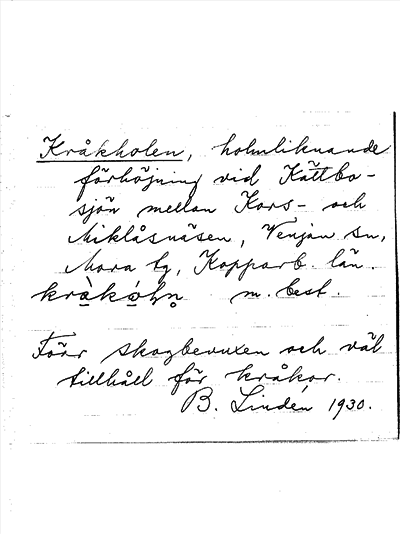 Kråkholen, holmliknande
förhöjning vid Kättbo-
sjön mellan Kors- och
Miklåsnäsen, Venjan sn,
Mora tg, Kopparb. län.
m. best.
Förr skogbevuxen och väl
tillhåll för kråkor.
B. Lindén, 1930.